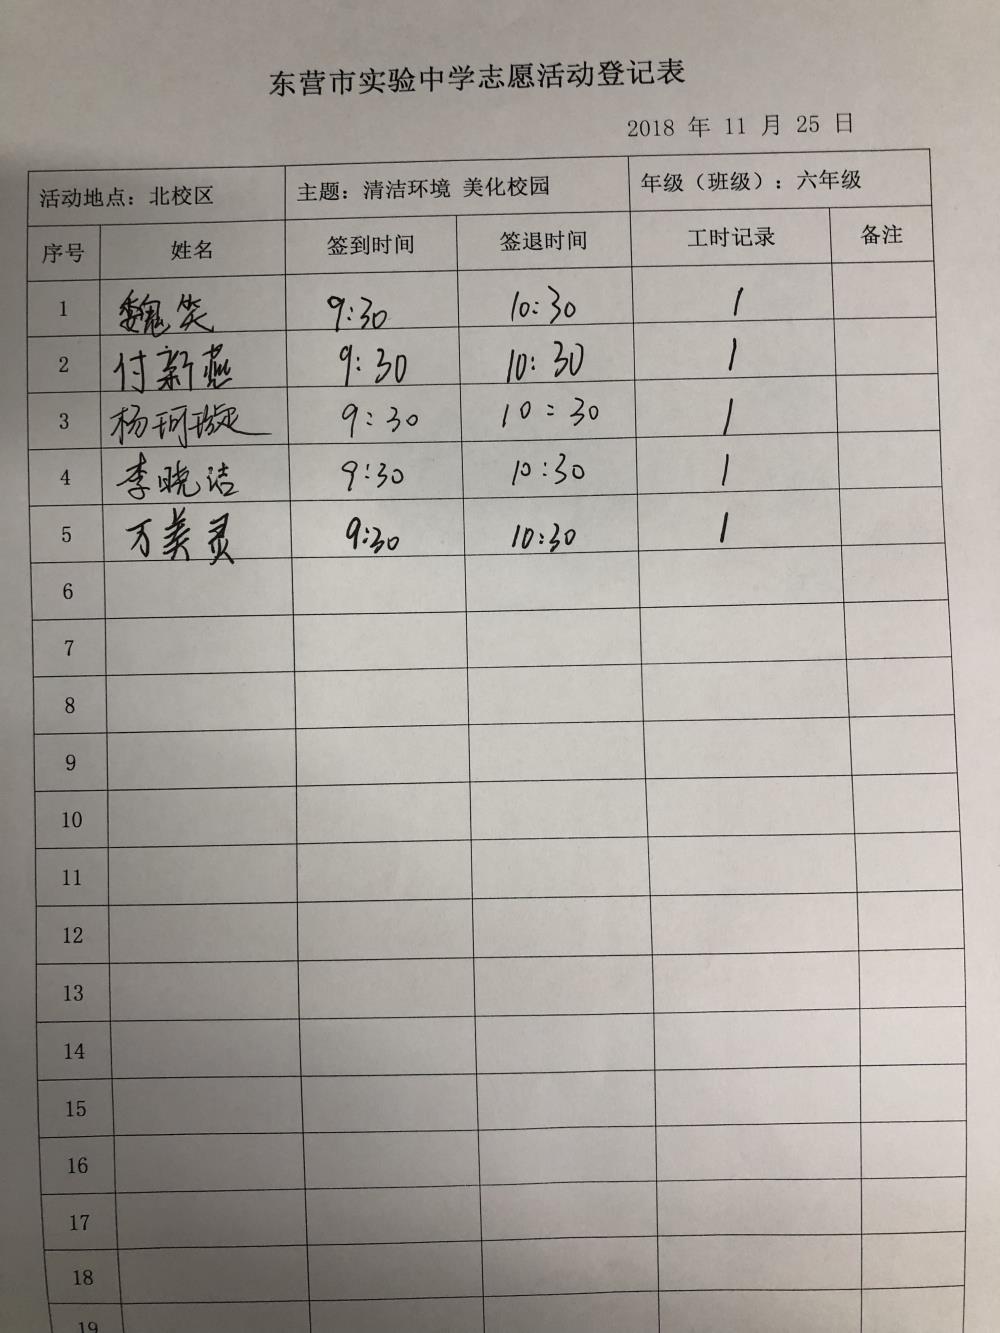 东营市实验中学志愿活动登记表
2018 年 11 月 25 日
活动地点：北校区 主题：清洁环境 美化校园 年级（班级）：六年级
序号 姓名 签到时间 签退时间 工时记录 备注
1 魏笑 9:30 10:30 1
2 付新燕 9:30 10:30 1
3 杨珂璇 9:30 10:30 1
4 李晓洁 9:30 10:30 1
5 万美灵 9:30 10:30 1
6
7
8
9
10
11
12
13
14
15
16
17
18
19